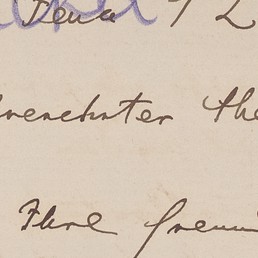 Jena 7 L
verehrter The
Ihre freun